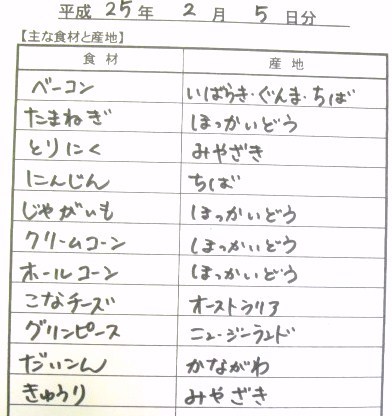 平成 25 年 2 月 5 日分
【主な食材と産地】
食材 産地
ベーコン いばらき・ぐんま・ちば
たまねぎ ほっかいどう
とりにく みやざき
にんじん ちば
じゃがいも ほっかいどう
クリームコーン ほっかいどう
ホールコーン ほっかいどう
こなチーズ オーストラリア
グリンピース ニュージーランド
だいこん かながわ
きゅうり みやざき